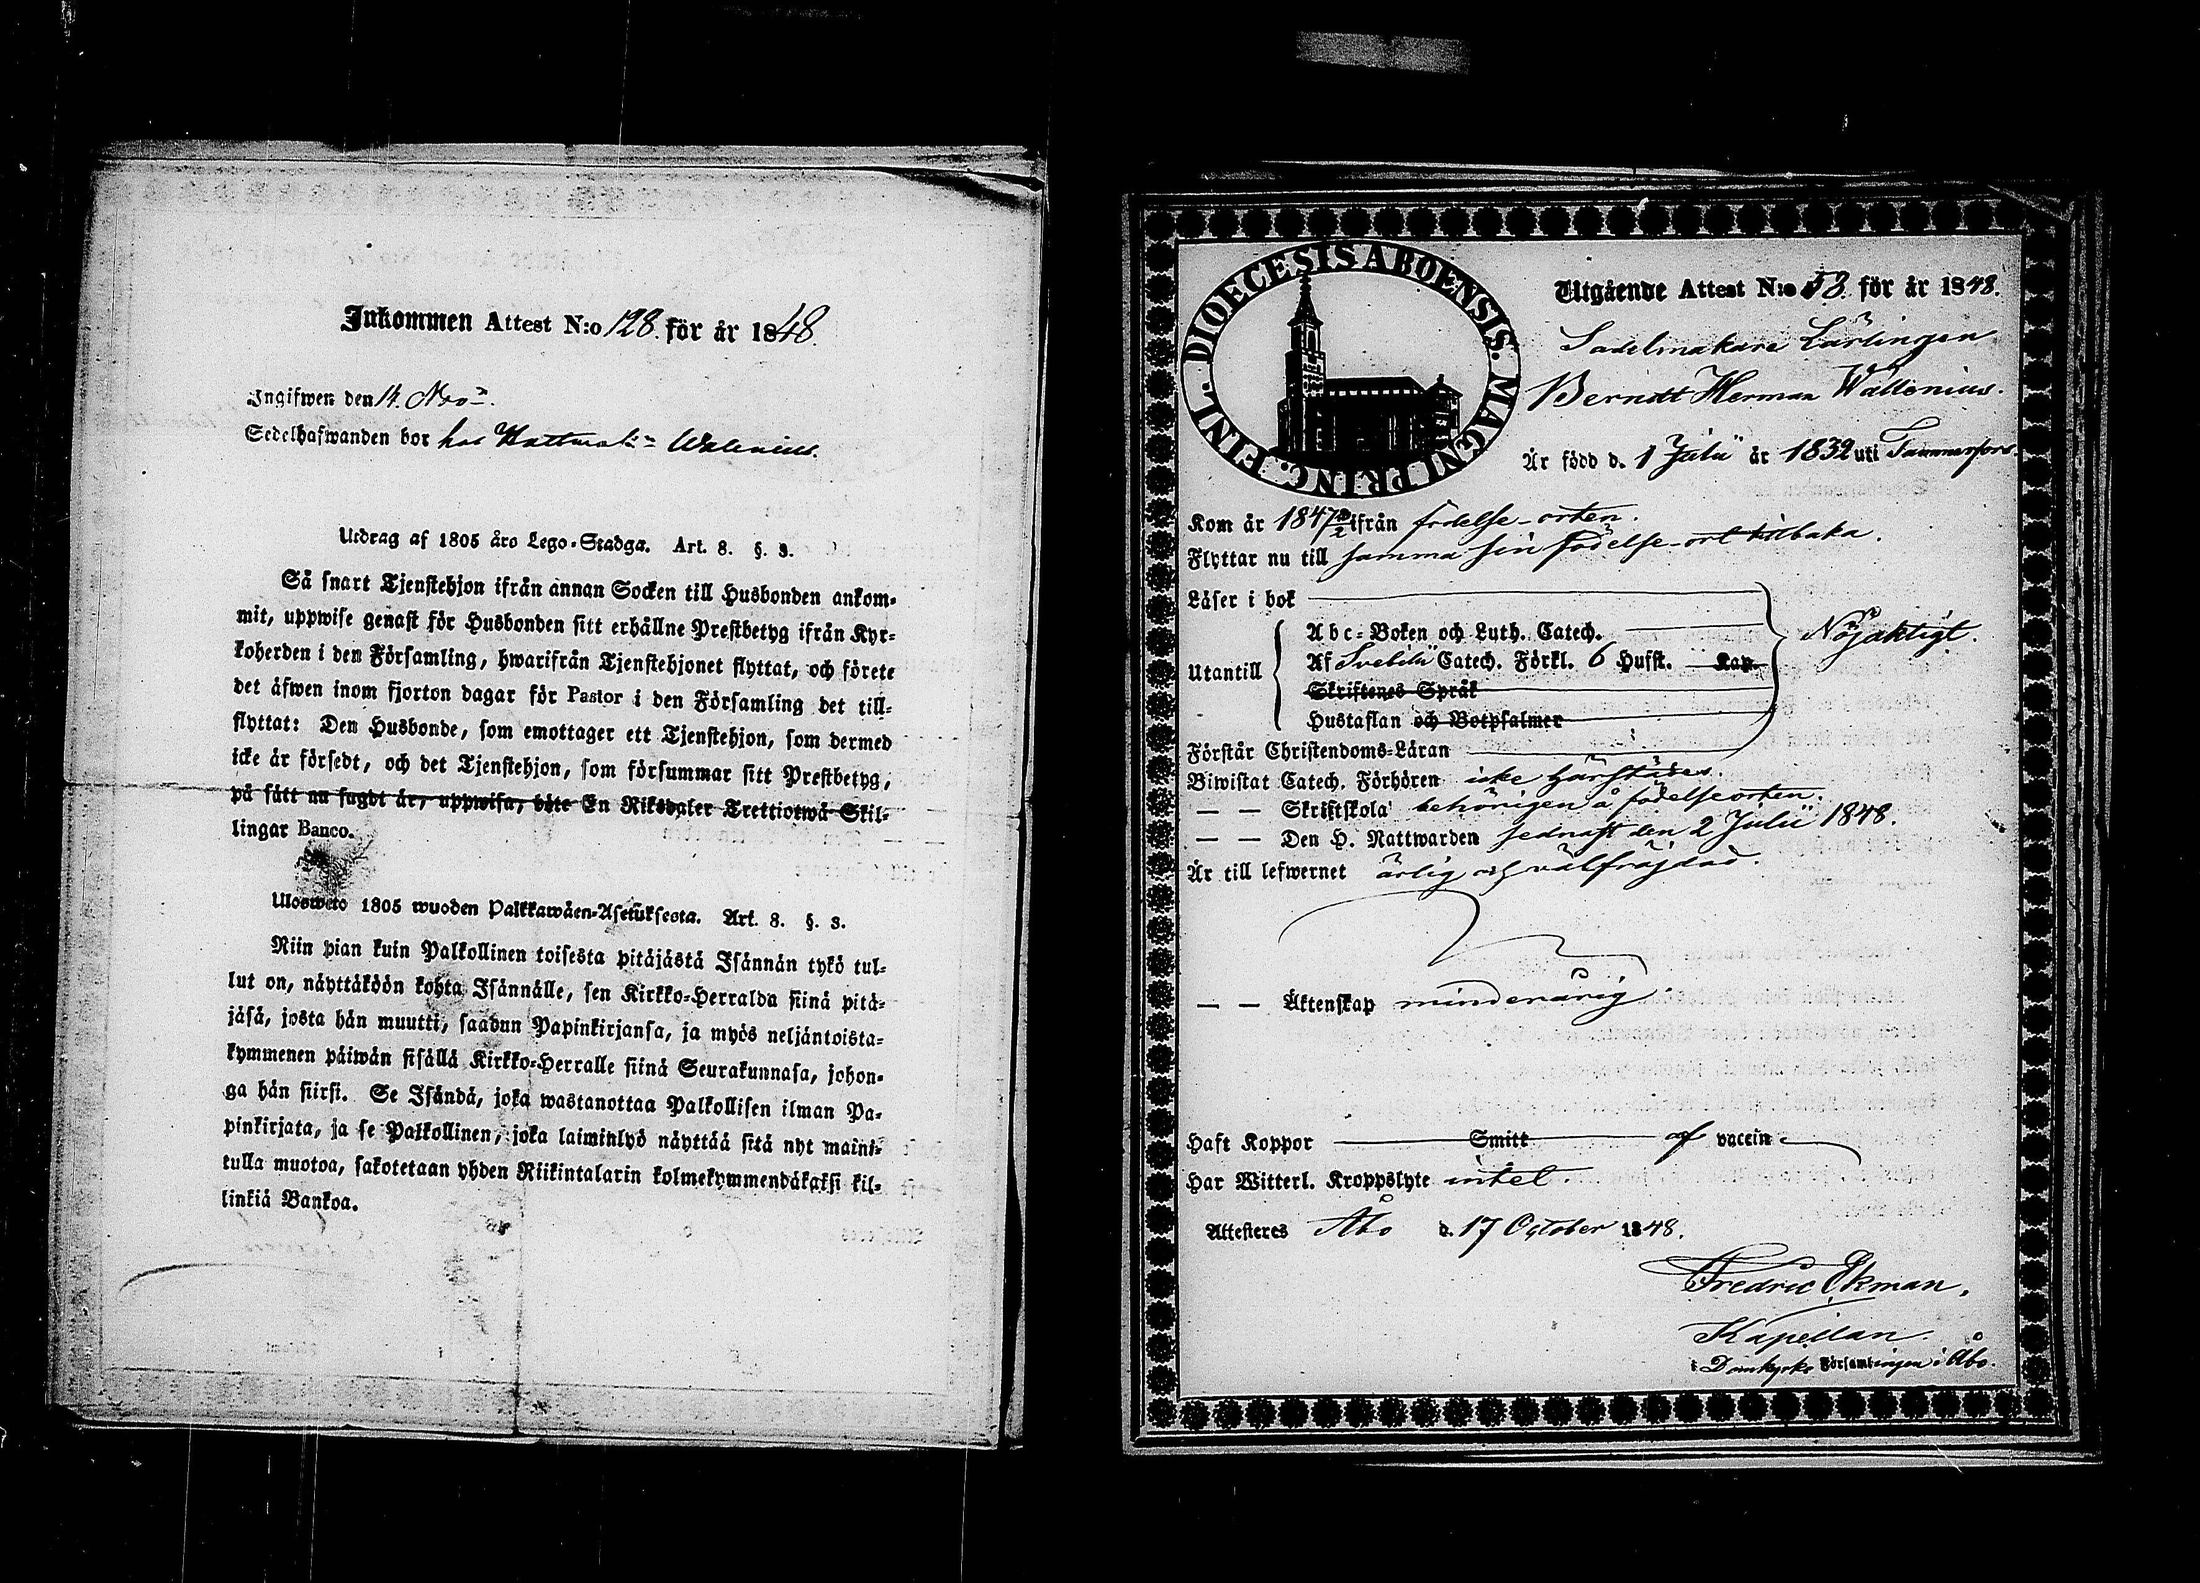 Inkommen Attest N:o 128. för år 1848.
Ingifwen den 14. Nov:
Sedelhafwanden bor hos Hattmak:n Wallenius.
Utdrag af 1805 års Lego-Stadga. Art. 8. §. 3.
Så snart Tjenstehjon ifrån annan Socken till Husbonden ankom-
mit, uppwise genast för Husbonden sitt erhållne Prestbetyg ifrån Kyr-
koherden i den Församling, hwarifrån Tjenstehjonet flyttat, och förete
det äfwen inom fjorton dagar för Pastor i den Församling det till-
flyttat: Den Husbonde, som emottager ett Tjenstehjon, som dermed
icke är försedt, och det Tjenstehjon, som försummar sitt Prestbetyg,
på sätt nu sagdt är, uppwisa, böte En Riksdaler Trettiotwå Skil-
lingar Banco.
Ulosweto 1805 wuoden Palkkawäen-Asetuksesta. Art. 8. §. 3.
Niin pian kuin Palkollinen toisesta pitäjästä Isännän tykö tul-
lut on, näyttäköön kohta Isännälle, sen Kirkko-Herralda siinä pitä-
jäsä, josta hän muutti, saadun Papinkirjansa, ja myös neljäntoista-
kymmenen päiwän sisällä Kirkko-Herralle siinä Seurakunnasa, johon-
ga hän siirsi. Se Isändä, joka wastanottaa Palkollisen ilman Pa-
pinkirjata, ja se Palkollinen, joka laiminlyö näyttää sitä nyt maini-
tulla muotoa, sakotetaan yhden Riikintalarin kolmekymmendäkaksi kil-
linkiä Bankoa.
FINL. DIOECESIS ABOENSIS. MAGNI PRINC.
Utgående Attest N:o 53. för år 1848.
Sadelmakare Lärlingen
Berndt Herman Wallenius.
Är född d. 1 Julii år 1832 uti Tammerfors.
Kom år 1847 ifrån födelse-orten.
Flyttar nu till samma sin födelse-ort tilbaka.
Läser i bok
Abc-Boken och Luth. Catech.
Nöjaktigt.
Utantill
Af Svebilii Catech. Förkl. 6 Hufst. Kap.
Skriftenes Språk
Hustaflan och Botpsalmer
Förstår Christendoms-Läran
Biwistat Catech. Förhören icke härstädes.
— — Skriftskola behörigen å födelseorten.
— — Den H. Nattwarden sednast den 2 Julii 1848.
Är till lefwernet ärlig och välfräjdad.
— — Äktenskap minderårig.
Haft Koppor Smitt af vaccin
Har Witterl. Kroppslyte intet.
Attesteres Åbo d. 17 October 1848.
Fredric Ekman.
Kapellan
i Domkyrko Församlingen i Åbo.